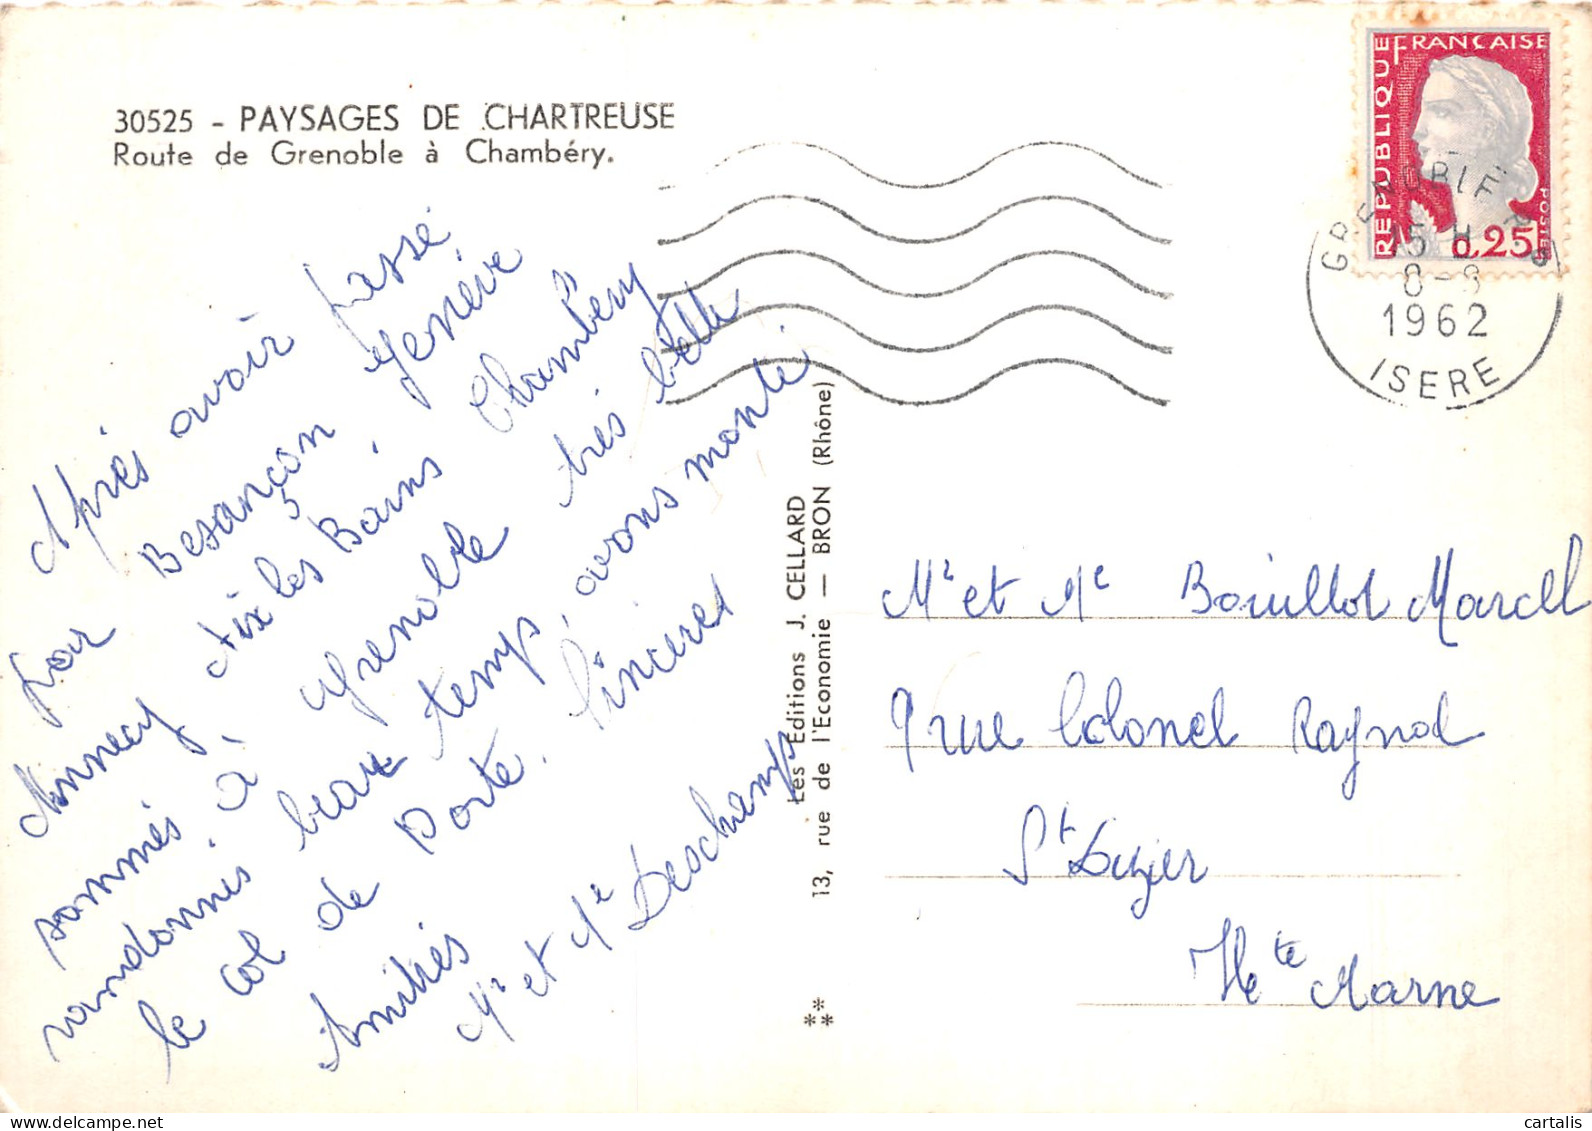 30525 - PAYSAGES DE CHARTREUSE
Route de Grenoble à Chambéry.
Après avoir passé
par Besançon Genève
Annecy Aix les Bains Chambéry
sommes à Grenoble très belle
randonnés beau temps, avons monté
le col de Porte. Sincères
Amitiés
Mr et Me Deschamps
Les Editions J. CELLARD
13, rue de l'Economie — BRON (Rhône)
**
*
REPUBLIQUE FRANÇAISE
POSTES
0,25
GRENOBLE R.P.
15 H
8-8
1962
ISERE
Mr et Me Bouillot Marcel
9 rue Colonel Raynal
St Dizier
Hte Marne
cartalis
www.delcampe.net